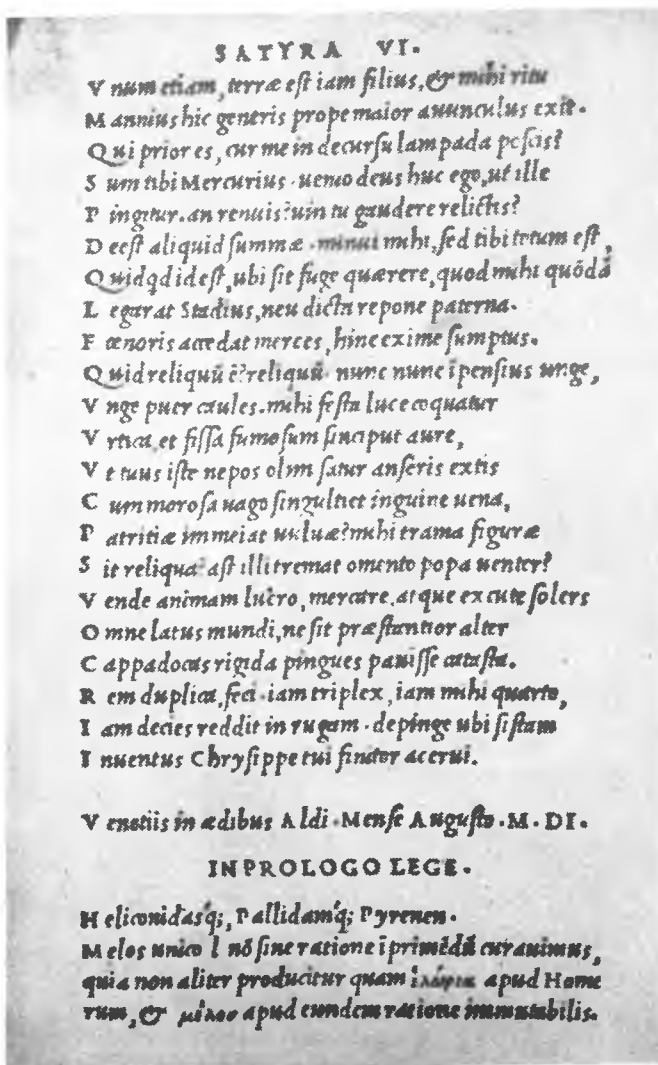 SATYRA VI.
V num etiam, terræ est iam filius, & mihi ritu
M annius hic generis prope maior auunculus exit.
Q ui prior es, cur me in decursu lampada poscis?
S um tibi Mercurius. uenio deus huc ego, ut ille
P ingitur. an renuis? uin tu gaudere relictis?
D eest aliquid summæ. minui mihi, sed tibi totum est,
Q uidqd id est, ubi sit fuge quærere, quod mihi quōdā
L egarat Stadius, neu dicta repone paterna.
F œnoris accedat merces, hinc exime sumptus.
Q uid reliquū ē? reliquū. nunc nunc īpensius unge,
V nge puer caules. mihi festa luce coquatur
V rtica, et fissa fumosum sinciput aure,
V t tuus iste nepos olim satur anseris extis
C um morosa uago singultiet inguine uena,
P atritiæ immeiat uuluæ? mihi trama figuræ
S it reliqua? ast illi tremat omento popa uenter?
V ende animam lucro, mercare, atque excute solers
O mne latus mundi, ne sit præstantior alter
C appadocas rigida pingues pauisse catasta.
R em duplica, feci. iam triplex, iam mihi quarto,
I am decies reddit in rugam. depinge ubi sistam
I nuentus Chrysippe tui finitor acerui.
V enetiis in ædibus Aldi. Mense Augusto. M. DI.
IN PROLOGO LEGE.
H eliconidasq́;, Pallidamq́; Pyrenen.
M elos unico l nō sine ratione īprimēdū curauimus,
quia non aliter producitur quam apud Home
rum, & μέλος apud eundem ratione immutabilis.